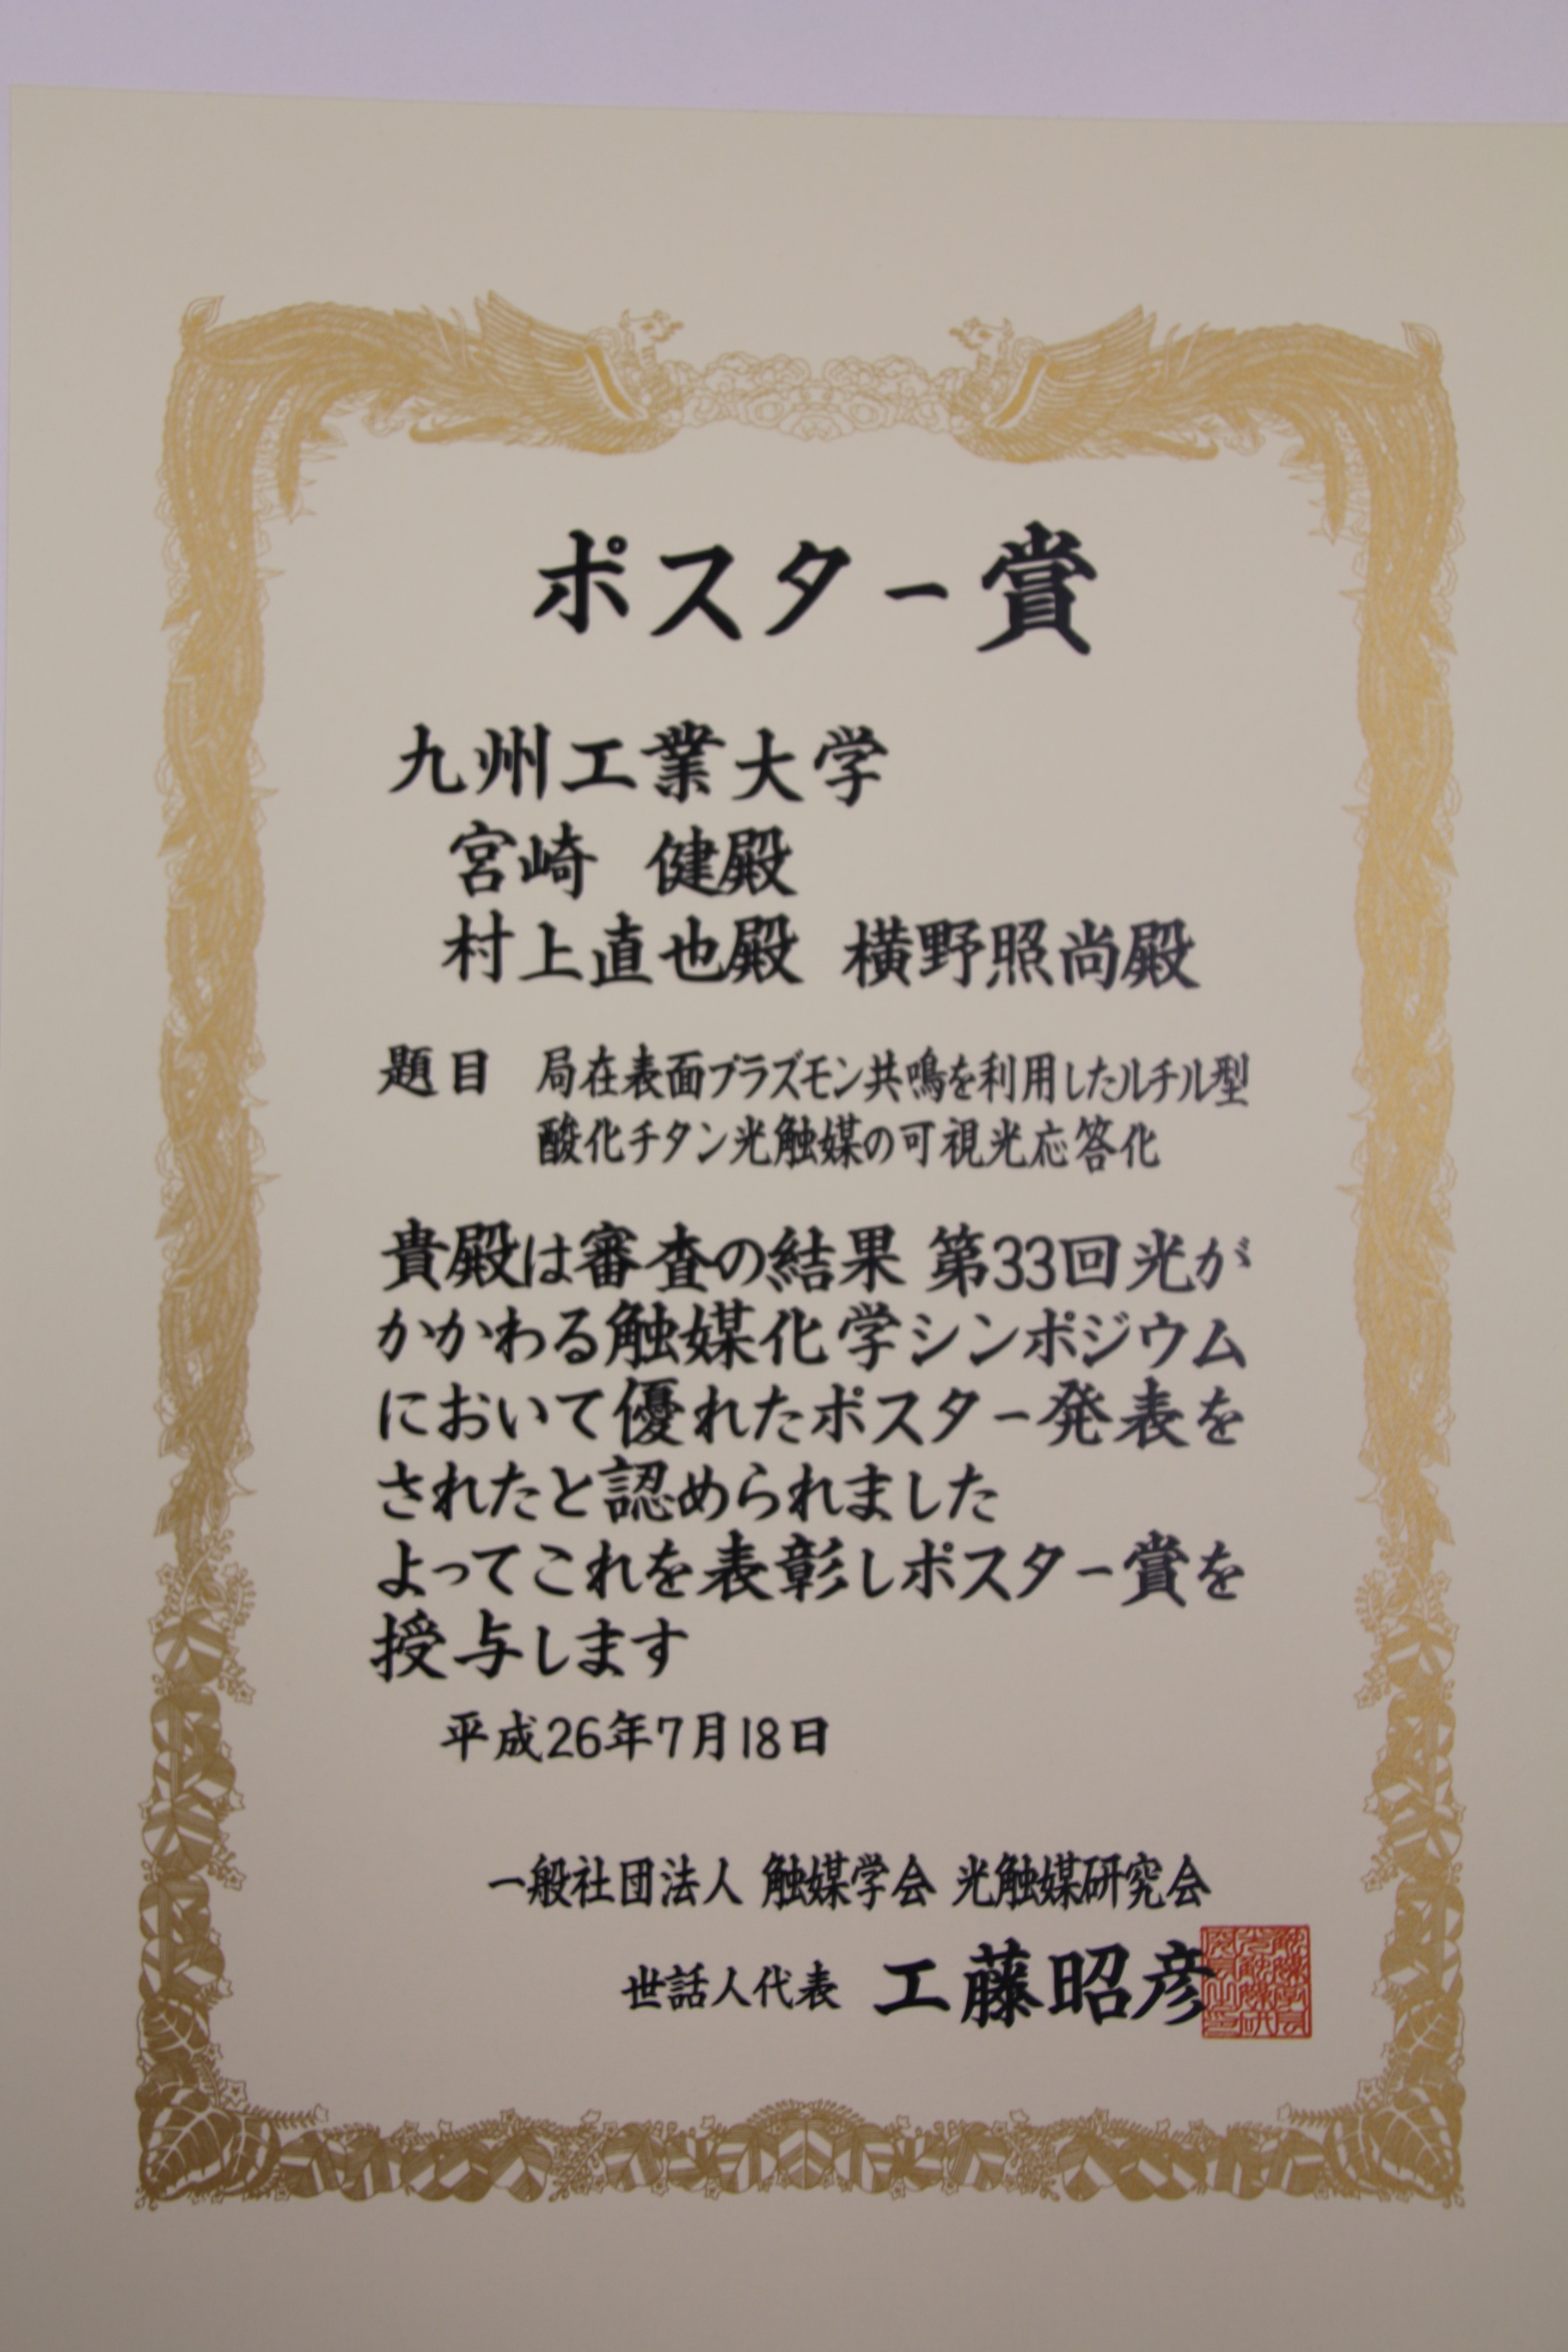 ポスター賞
九州工業大学
宮崎 健殿
村上直也殿 横野照尚殿
題目 局在表面プラズモン共鳴を利用したルチル型
酸化チタン光触媒の可視光応答化
貴殿は審査の結果 第33回光が
かかわる触媒化学シンポジウム
において優れたポスター発表を
されたと認められました
よってこれを表彰しポスター賞を
授与します
平成26年7月18日
一般社団法人 触媒学会 光触媒研究会
世話人代表 工藤昭彦